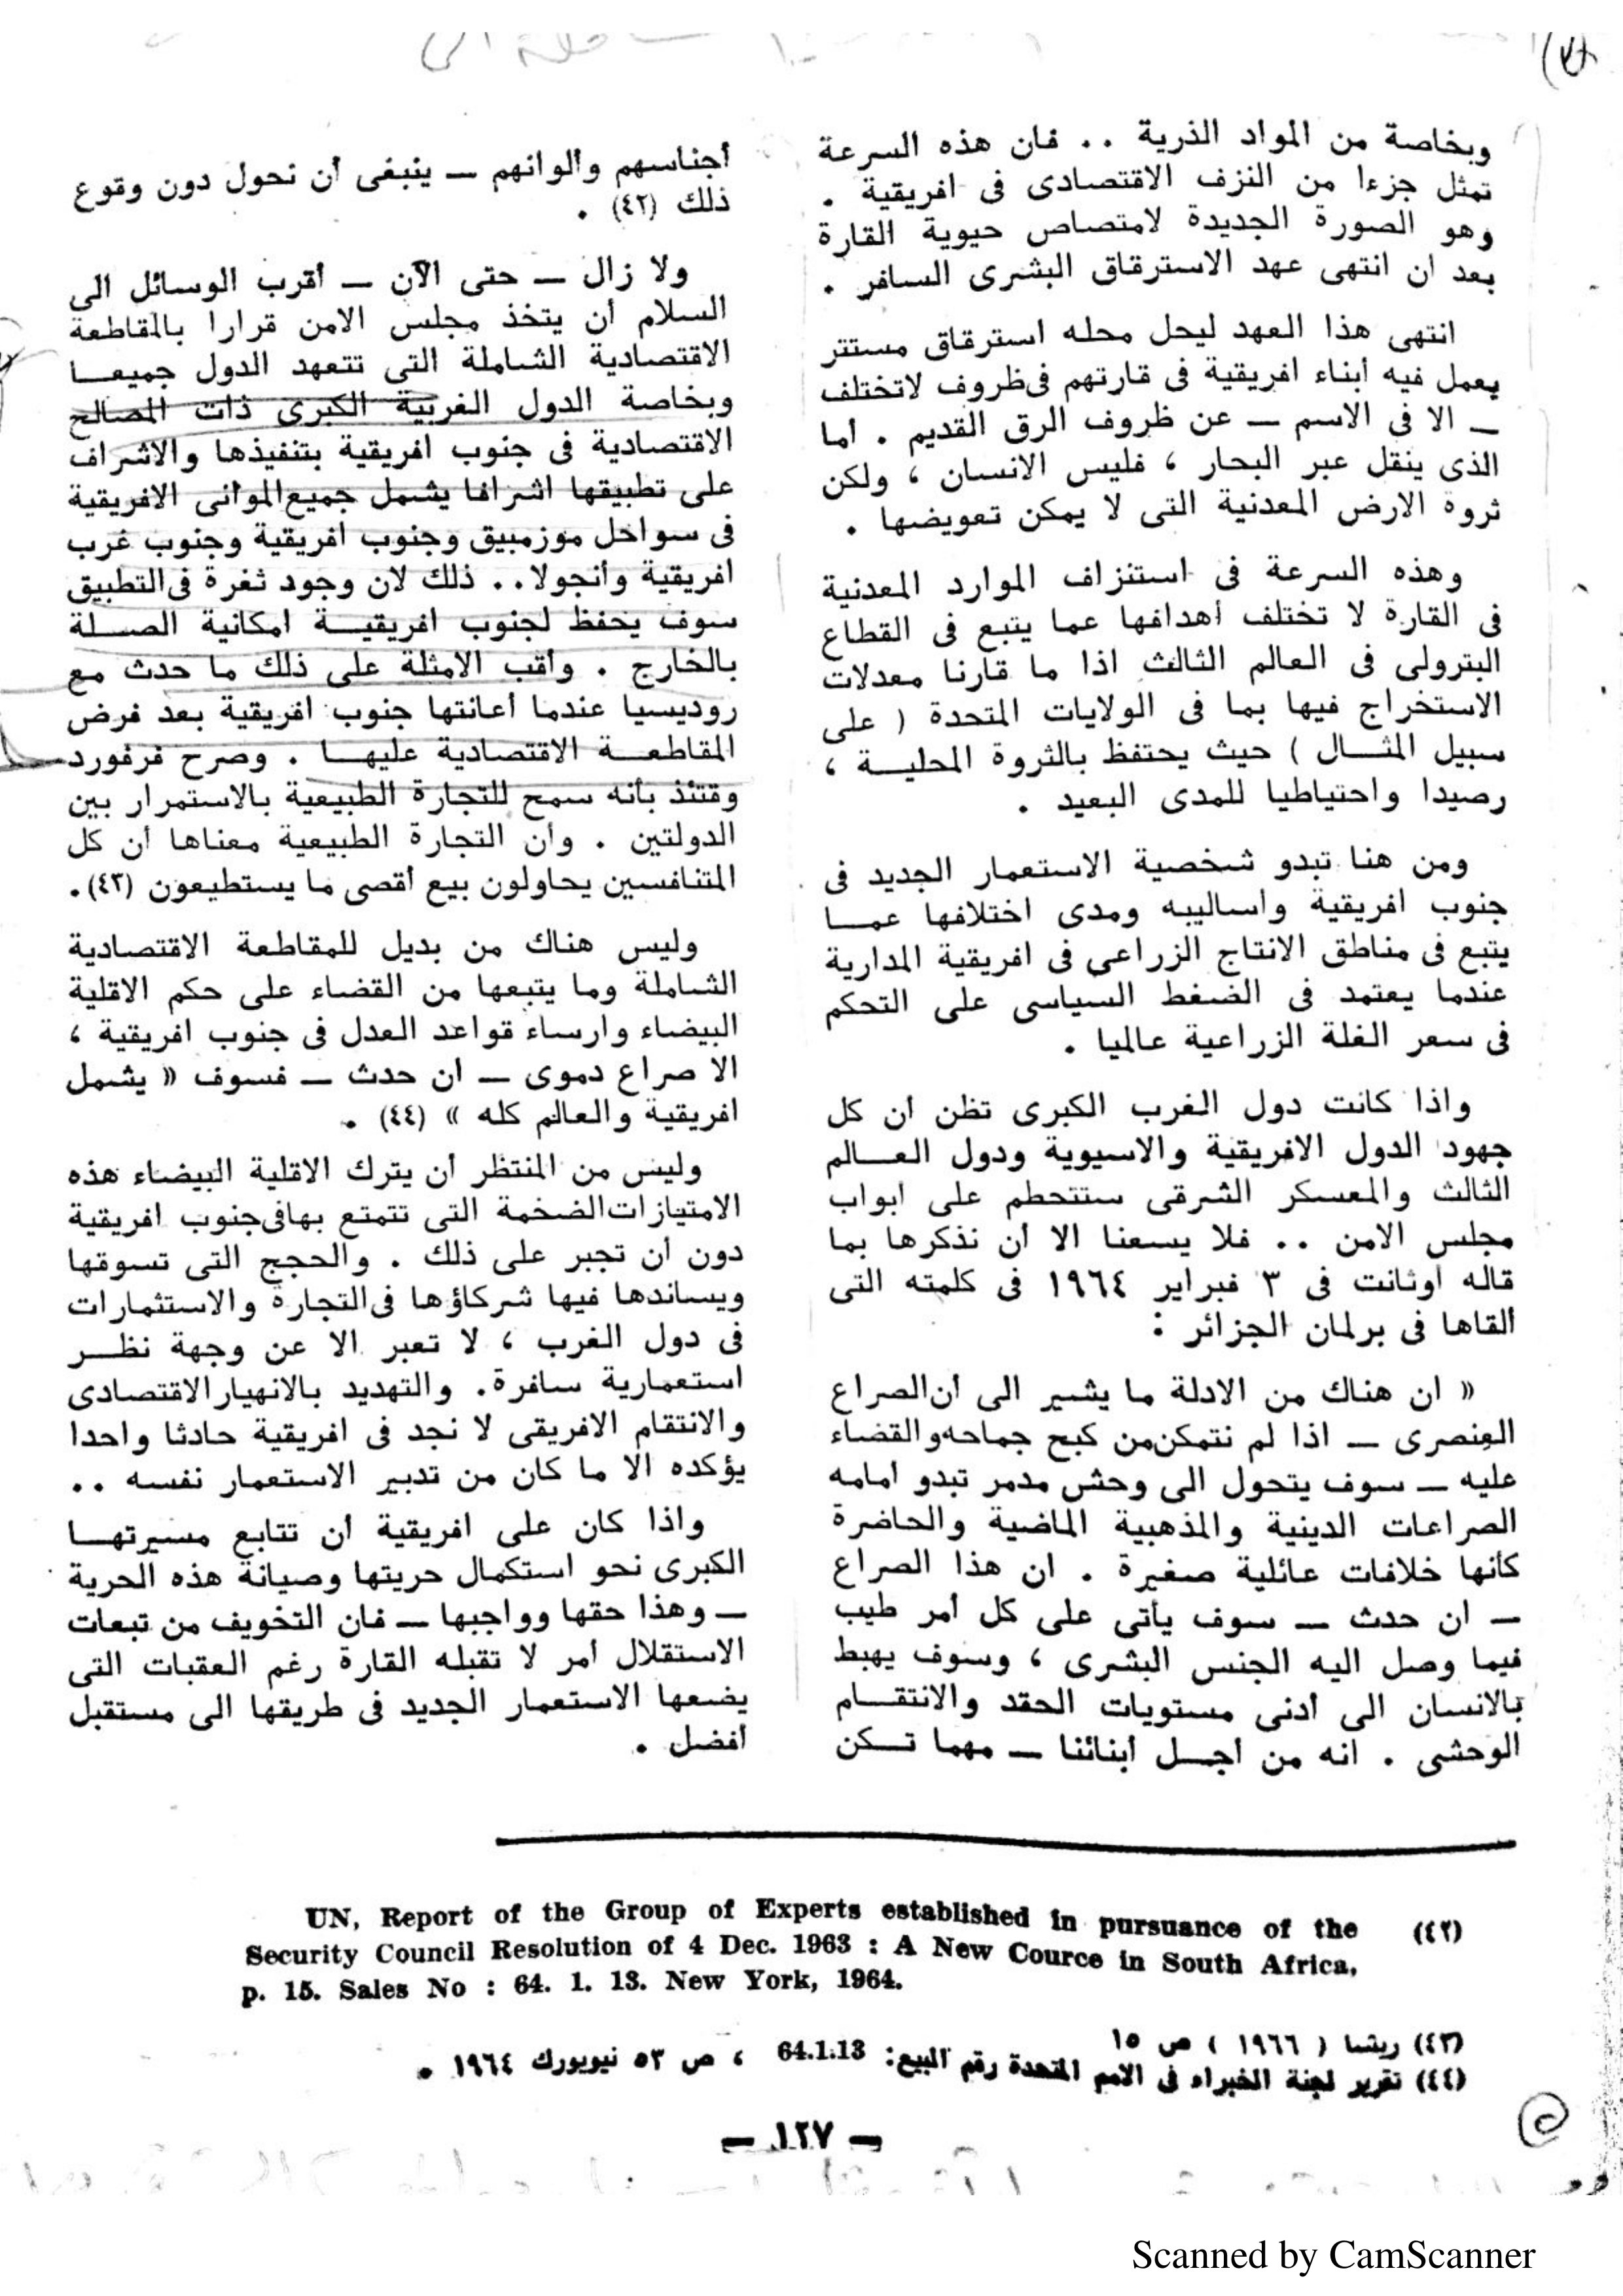 وبخاصة من المواد الذرية .. فان هذه السرعة
تمثل جزءا من النزف الاقتصادى فى افريقية .
وهو الصورة الجديدة لامتصاص حيوية القارة
بعد ان انتهى عهد الاسترقاق البشرى السافر .
انتهى هذا العهد ليحل محله استرقاق مستتر
يعمل فيه أبناء افريقية فى قارتهم فى ظروف لا تختلف
ــ الا فى الاسم ــ عن ظروف الرق القديم . أما
الذى ينقل عبر البحار ، فليس الانسان ، ولكن
ثروة الارض المعدنية التى لا يمكن تعويضها .
وهذه السرعة فى استنزاف الموارد المعدنية
فى القارة لا تختلف أهدافها عما يتبع فى القطاع
البترولى فى العالم الثالث اذا ما قارنا معدلات
الاستخراج فيها بما فى الولايات المتحدة ( على
سبيل المثـال ) حيث يحتفظ بالثروة المحليـة ،
رصيدا واحتياطيا للمدى البعيد .
ومن هنا تبدو شخصية الاستعمار الجديد فى
جنوب افريقية واساليبه ومدى اختلافها عمـا
يتبع فى مناطق الانتاج الزراعى فى افريقية المدارية
عندما يعتمد فى الضغط السياسى على التحكم
فى سعر الغلة الزراعية عالميا .
واذا كانت دول الغرب الكبرى تظن ان كل
جهود الدول الافريقية والاسيوية ودول العـالم
الثالث والمعسكر الشرقى ستتحطم على أبواب
مجلس الامن .. فلا يسعنا الا أن نذكرها بما
قاله أوثانت فى ٣ فبراير ١٩٦٤ فى كلمته التى
ألقاها فى برلمان الجزائر :
« ان هناك من الادلة ما يشير الى أن الصراع
العنصرى ــ اذا لم نتمكن من كبح جماحه والقضاء
عليه ــ سوف يتحول الى وحش مدمر تبدو أمامه
الصراعات الدينية والمذهبية الماضية والحاضرة
كأنها خلافات عائلية صغيرة . ان هذا الصراع
ــ ان حدث ــ سوف يأتى على كل أمر طيب
فيما وصل اليه الجنس البشرى ، وسوف يهبط
بالانسان الى أدنى مستويات الحقد والانتقـام
الوحشى . انه من أجـل أبنائنا ــ مهما تـكن
أجناسهم وألوانهم ــ ينبغى أن نحول دون وقوع
ذلك (٤٢) .
ولا زال ــ حتى الآن ــ أقرب الوسائل الى
السلام أن يتخذ مجلس الامن قرارا بالمقاطعة
الاقتصادية الشاملة التى تتعهد الدول جميعـا
وبخاصة الدول الغربية الكبرى ذات المصالح
الاقتصادية فى جنوب افريقية بتنفيذها والاشراف
على تطبيقها اشرافا يشمل جميع الموانى الافريقية
فى سواحل موزمبيق وجنوب افريقية وجنوب غرب
افريقية وأنجولا.. ذلك لان وجود ثغرة فى التطبيق
سوف يحفظ لجنوب افريقيـة امكانية الصـلة
بالخارج . وأقب الامثلة على ذلك ما حدث مع
روديسيا عندما أعانتها جنوب افريقية بعد فرض
المقاطعـة الاقتصادية عليهـا . وصرح فرفورد
وقتئذ بأنه سمح للتجارة الطبيعية بالاستمرار بين
الدولتين . وان التجارة الطبيعية معناها أن كل
المتنافسين يحاولون بيع أقصى ما يستطيعون (٤٣).
وليس هناك من بديل للمقاطعة الاقتصادية
الشاملة وما يتبعها من القضاء على حكم الاقلية
البيضاء وارساء قواعد العدل فى جنوب افريقية ،
الا صراع دموى ــ ان حدث ــ فسوف « يشمل
افريقية والعالم كله » (٤٤) .
وليس من المنتظر أن يترك الاقلية البيضاء هذه
الامتيازات الضخمة التى تتمتع بها فى جنوب افريقية
دون أن تجبر على ذلك . والحجج التى تسوقها
ويساندها فيها شركاؤها فى التجارة والاستثمارات
فى دول الغرب ، لا تعبر الا عن وجهة نظـر
استعمارية سافرة. والتهديد بالانهيار الاقتصادى
والانتقام الافريقى لا نجد فى افريقية حادثا واحدا
يؤكده الا ما كان من تدبير الاستعمار نفسه ..
واذا كان على افريقية أن تتابع مسيرتهـا
الكبرى نحو استكمال حريتها وصيانة هذه الحرية
ــ وهذا حقها وواجبها ــ فان التخويف من تبعات
الاستقلال أمر لا تقبله القارة رغم العقبات التى
يضعها الاستعمار الجديد فى طريقها الى مستقبل
أفضل .
(٤٢) UN, Report of the Group of Experts established in pursuance of the
Security Council Resolution of 4 Dec. 1963 : A New Cource in South Africa,
p. 15. Sales No : 64. 1. 13. New York, 1964.
(٤٣) ريشا ( ١٩٦٦ ) ص ١٥
(٤٤) تقرير لجنة الخبراء فى الامم المتحدة رقم البيع: 64.1.13 ، ص ٥٣ نيويورك ١٩٦٤ .
ــ ١٢٧ ــ
Scanned by CamScanner